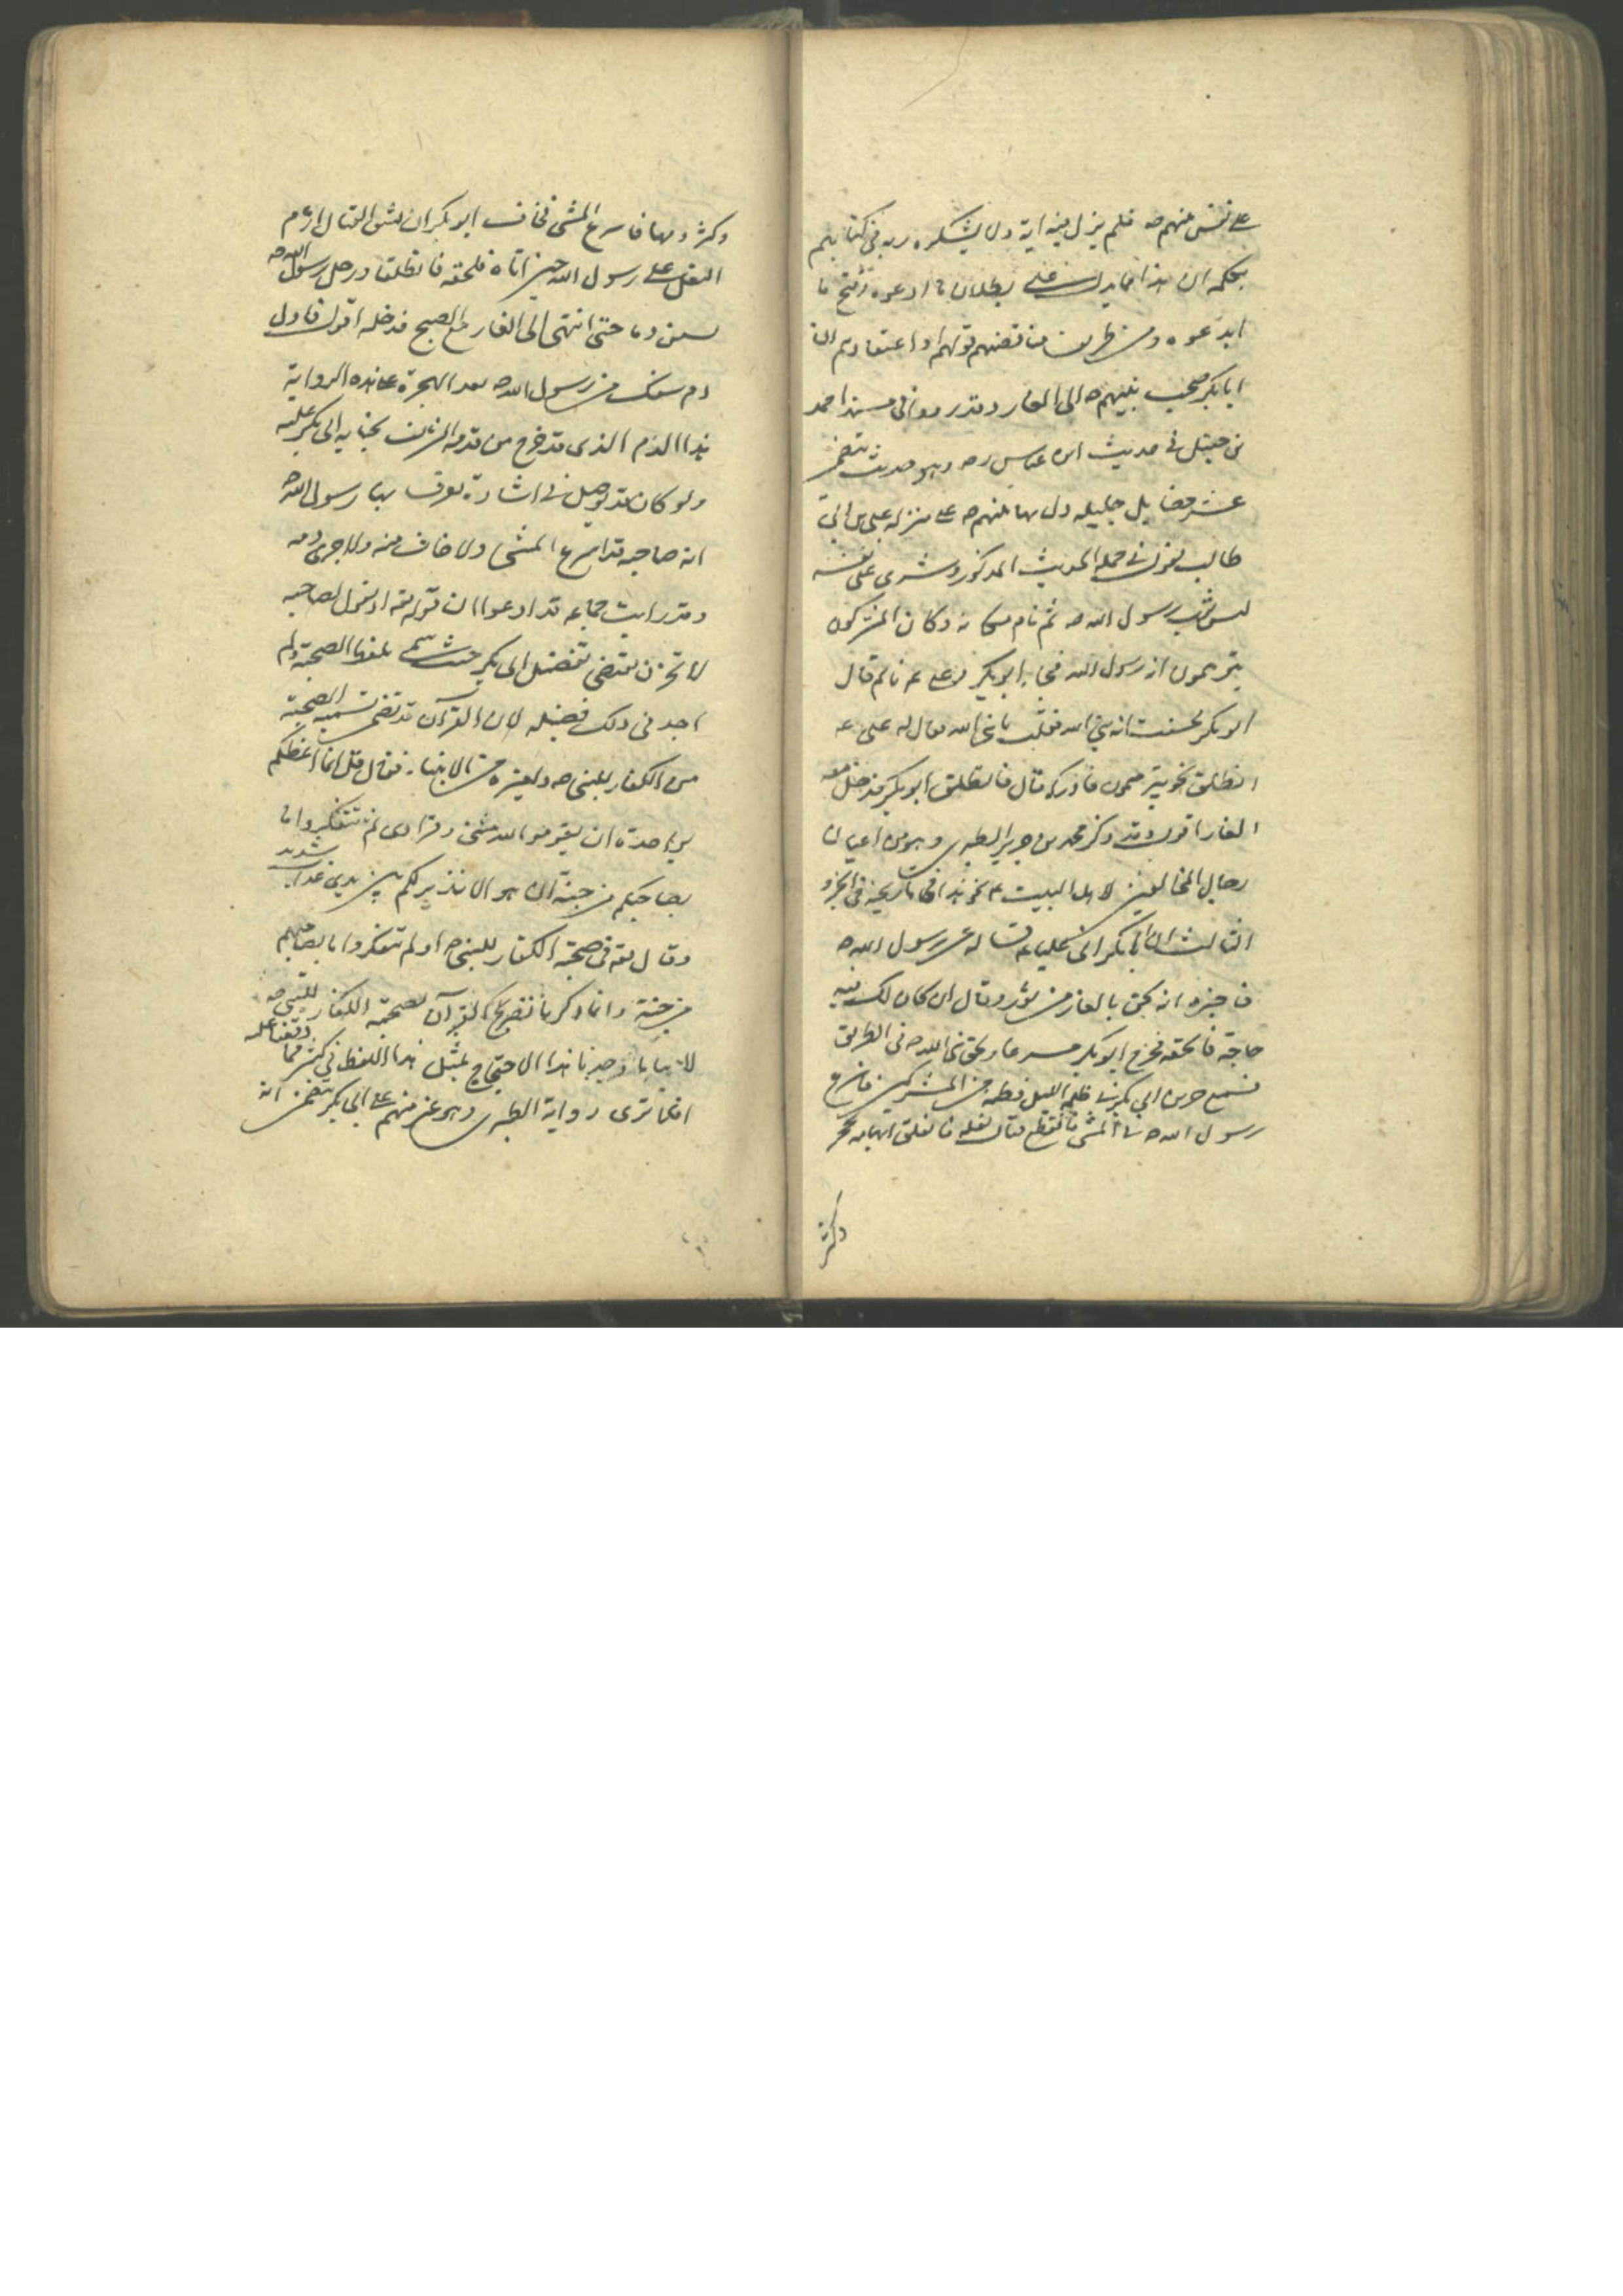 على نفس نبيهم صه فلم ينزل فيه اية ولا يشكره ربه في كتابهم
بحكم ان هذا مما يدل على بطلان ما ادعوه وقبح ما
ابدعوه ومن طريف مناقضتهم قولهم او اعتقادهم ان
ابابكر صحب نبيهم صه الى الغار وقد رووا في مسند احمد
بن حنبل في حديث ابن عباس ره وهو حديث يتضمن
عشر فضايل جليله دل بها نبيهم صه على منزله على بن ابى
طالب يقول في جمله الحديث المذكور وشرى على نفسه
لبس ثوب رسول الله صه ثم نام مكانه وكان المشركون
يتوهمون انه رسول الله فجاء ابوبكر وعلى ع نائم قال
ابوبكر فحسبت انه نبي الله فقلت يا نبي الله فقال له على ع
انطلق نحو بئر ميمون فادركه قال فانطلق ابوبكر فدخل معه
الغار اقول وقد ذكر محمد بن جرير الطبرى وهو من اعيان
رجال المخالفين لاهل البيت ع نحو هذا في تاريخه في الجزو
الثالث ان ابابكر اتى عليا ع فساله عن رسول الله صه
فاخبره انه لحق بالغار من ثور وقال ان كان لك فيه
حاجة فالحقه فخرج ابوبكر مسرعا ولحق نبى الله صه في الطريق
فسمع جرس ابي بكر في ظلمه الليل فظنه من المشركين فاسرع
رسول الله صه في المشى فانقطع قبال نعله فانفلق ابهامه بحجر
وكثر
وكثر دمها فاسرع المشى فخاف ابوبكر ان يشق
على رسول الله حين اتاه فانطلقا ورجل رسول الله صه
دما حتى انتهى الى الغار مع الصبح فدخله اقول فاول
دم سفك من رسول الله صه بعد الهجرة على هذه الرواية
هذا الدم الذى قد خرج من قدمه الشريف بجنايه ابى بكر عليه
ولو كان قد توصل في اشارة يعرف بها رسول الله صه
انه صاحبه لما اسرع المشى ولا خاف منه ولا جرى دمه
وقد رايت جماعه قد ادعوا ان قوله تعه اذ يقول لصاحبه
لا تحزن يقتضى تفضيل ابى بكر حيث سمى بلفظ الصحبة ولم
اجد في ذلك فضيله لان القرآن قد تضمن تسميه الصحبة
من الكفار للنبى صه ولغيره من الانبياء فقال قل انما اعظكم
بواحدة ان تقوموا لله مثنى وفرادى ثم تتفكروا ما
بصاحبكم من جنة ان هو الا نذير لكم بين يدى عذاب شديد
وقال تعه في صحبة الكفار للنبى صه اولم يتفكروا ما بصاحبهم
من جنة وانما ذكرنا تصريح القرآن لصحبه الكفار للنبى صه
لاننا وجدنا هذا الاحتجاج بمثل هذا اللفظ في كثير مما وقفنا عليه
افما ترى رواية الطبرى وهو غير متهم على ابى بكر يتضمن انه